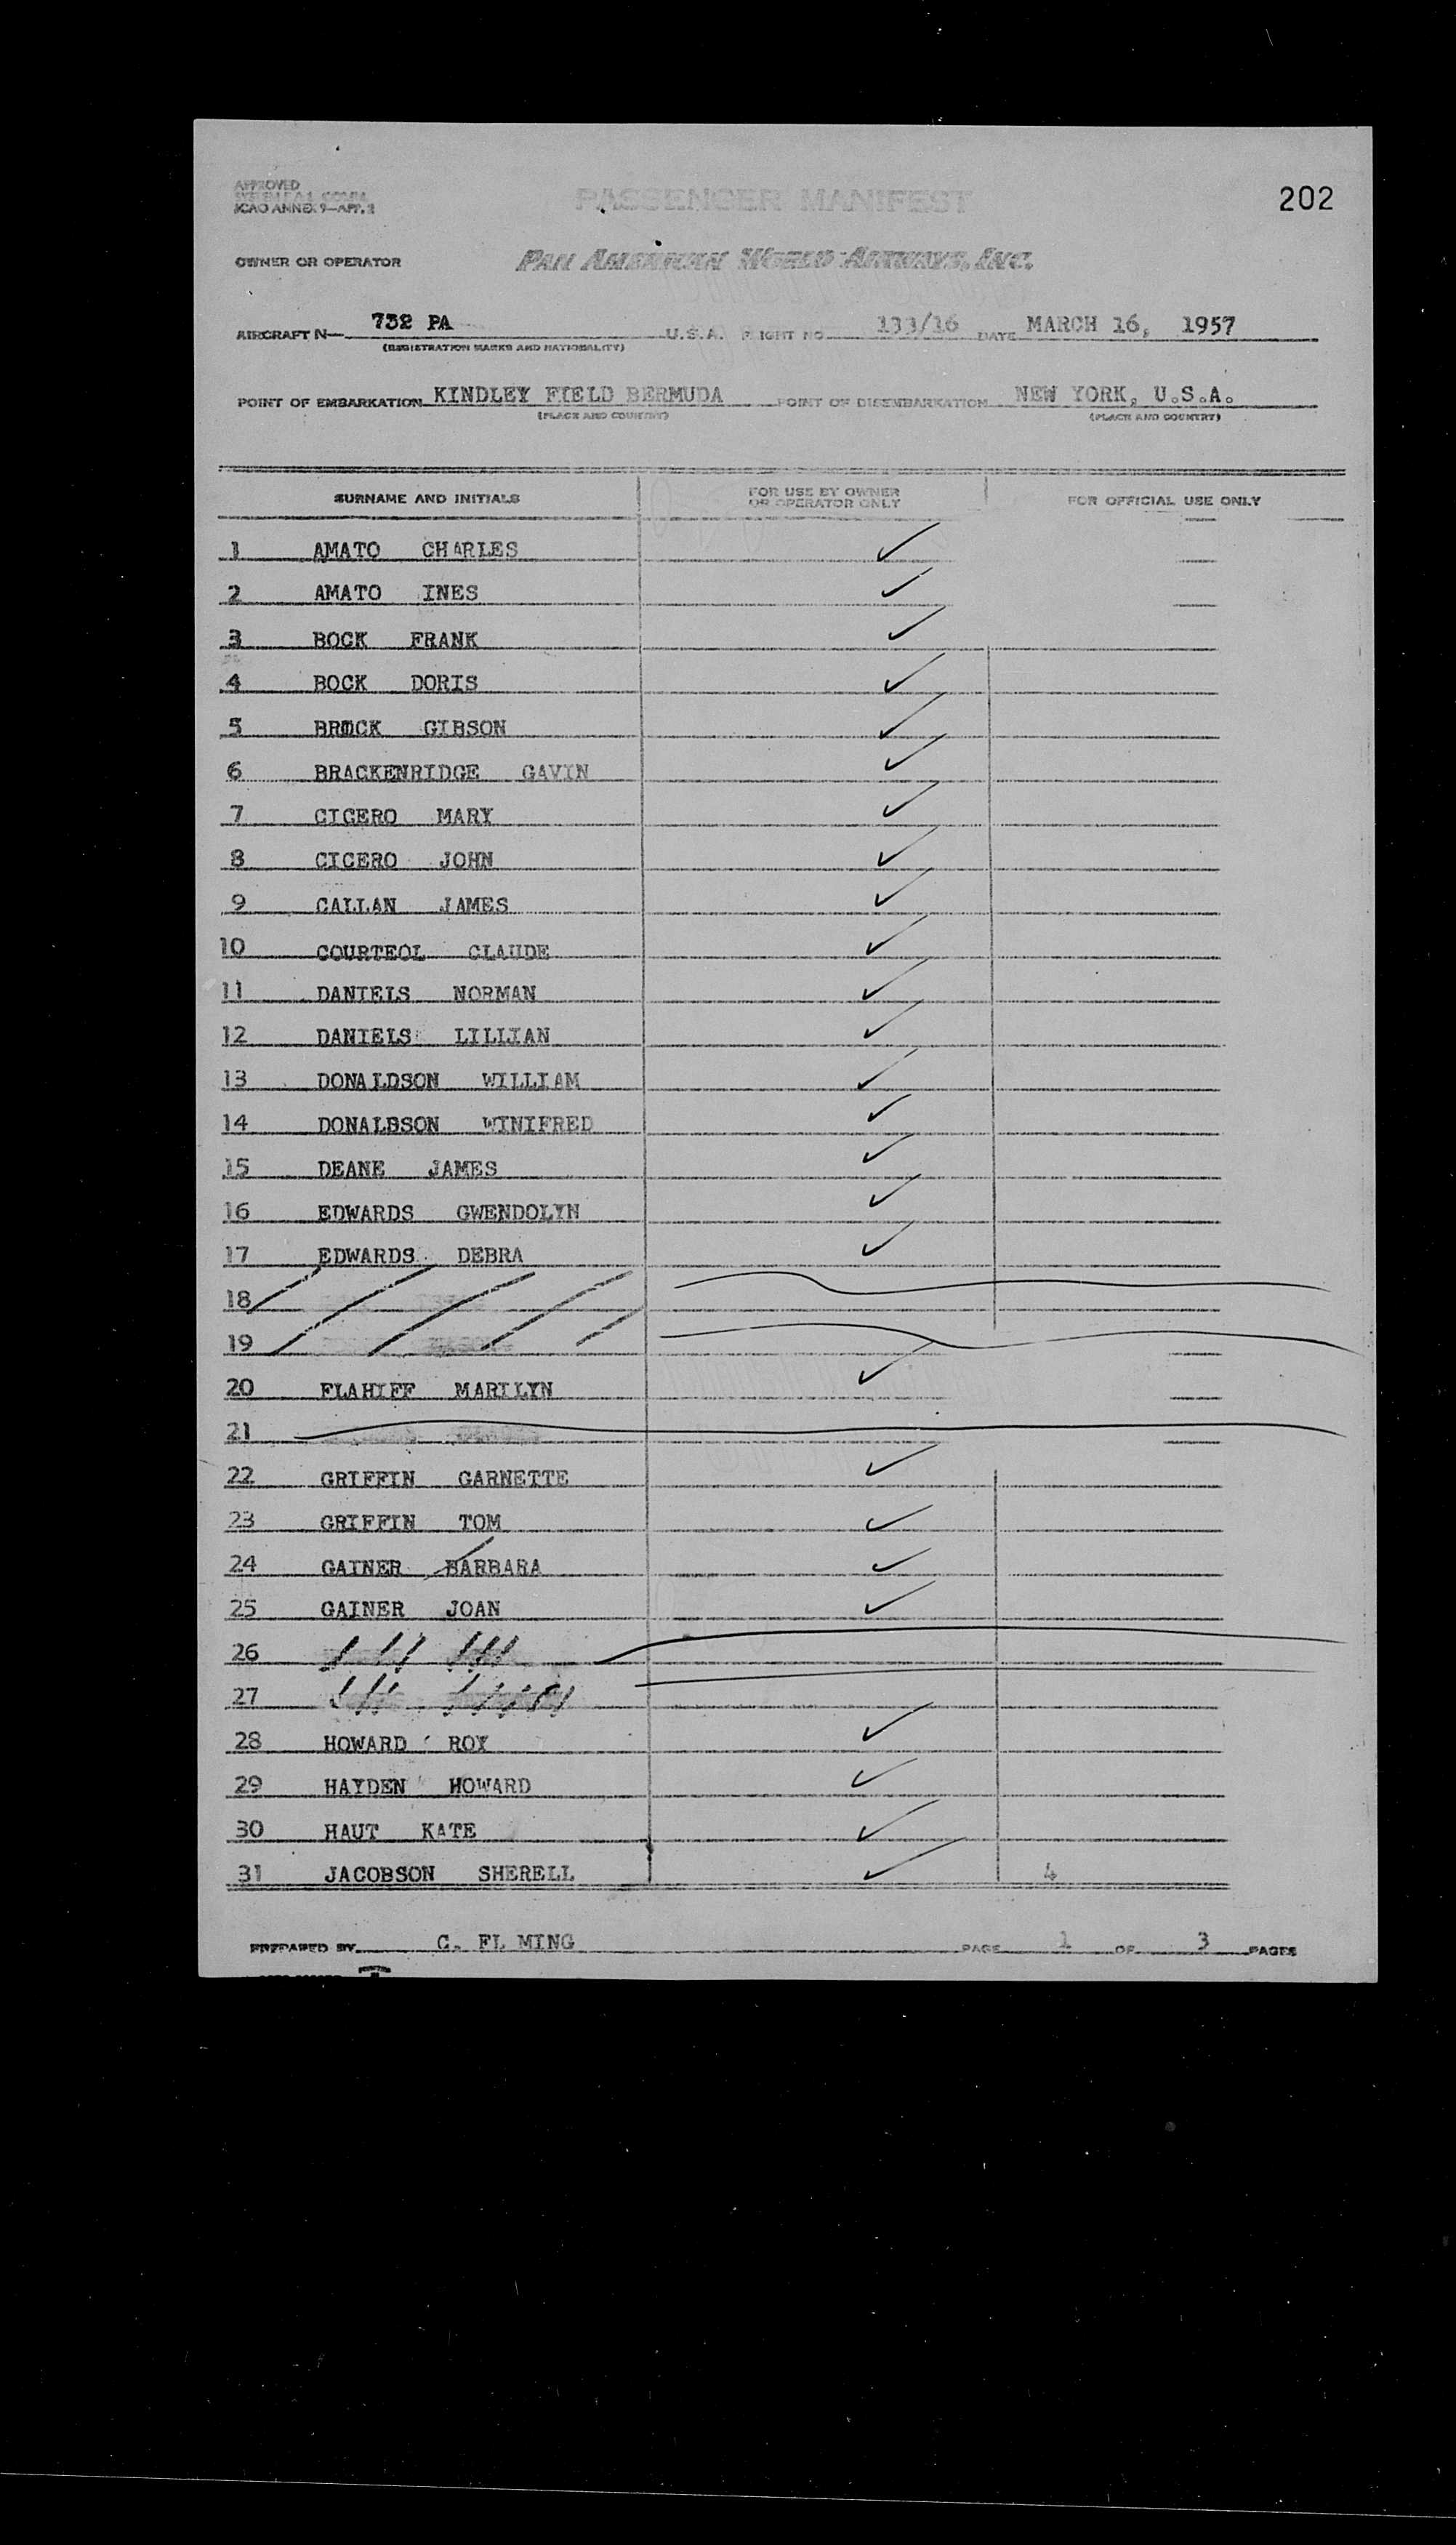 APPROVED
ICAO ANNEX 9—APP. 2
PASSENGER MANIFEST
202
OWNER OR OPERATOR PAN AMERICAN WORLD AIRWAYS, INC.
AIRCRAFT N— 732 PA U.S.A. FLIGHT NO. 133/16 DATE MARCH 16, 1957
(REGISTRATION MARKS AND NATIONALITY)
POINT OF EMBARKATION KINDLEY FIELD BERMUDA POINT OF DISEMBARKATION NEW YORK, U.S.A.
(PLACE AND COUNTRY) (PLACE AND COUNTRY)
SURNAME AND INITIALS FOR USE BY OWNER OR OPERATOR ONLY FOR OFFICIAL USE ONLY
1 AMATO CHARLES
2 AMATO INES
3 BOCK FRANK
4 BOCK DORIS
5 BROCK GIBSON
6 BRACKENRIDGE GAVIN
7 CICERO MARY
8 CICERO JOHN
9 CALLAN JAMES
10 COURTEOL CLAUDE
11 DANIELS NORMAN
12 DANIELS LILLIAN
13 DONALDSON WILLIAM
14 DONALBSON WINIFRED
15 DEANE JAMES
16 EDWARDS GWENDOLYN
17 EDWARDS DEBRA
18
19
20 FLAHIFF MARILYN
21
22 GRIFFIN GARNETTE
23 GRIFFIN TOM
24 GAINER BARBARA
25 GAINER JOAN
26
27
28 HOWARD ROY
29 HAYDEN HOWARD
30 HAUT KATE
31 JACOBSON SHERELL 4
PREPARED BY C. FL MING PAGE 1 OF 3 PAGES